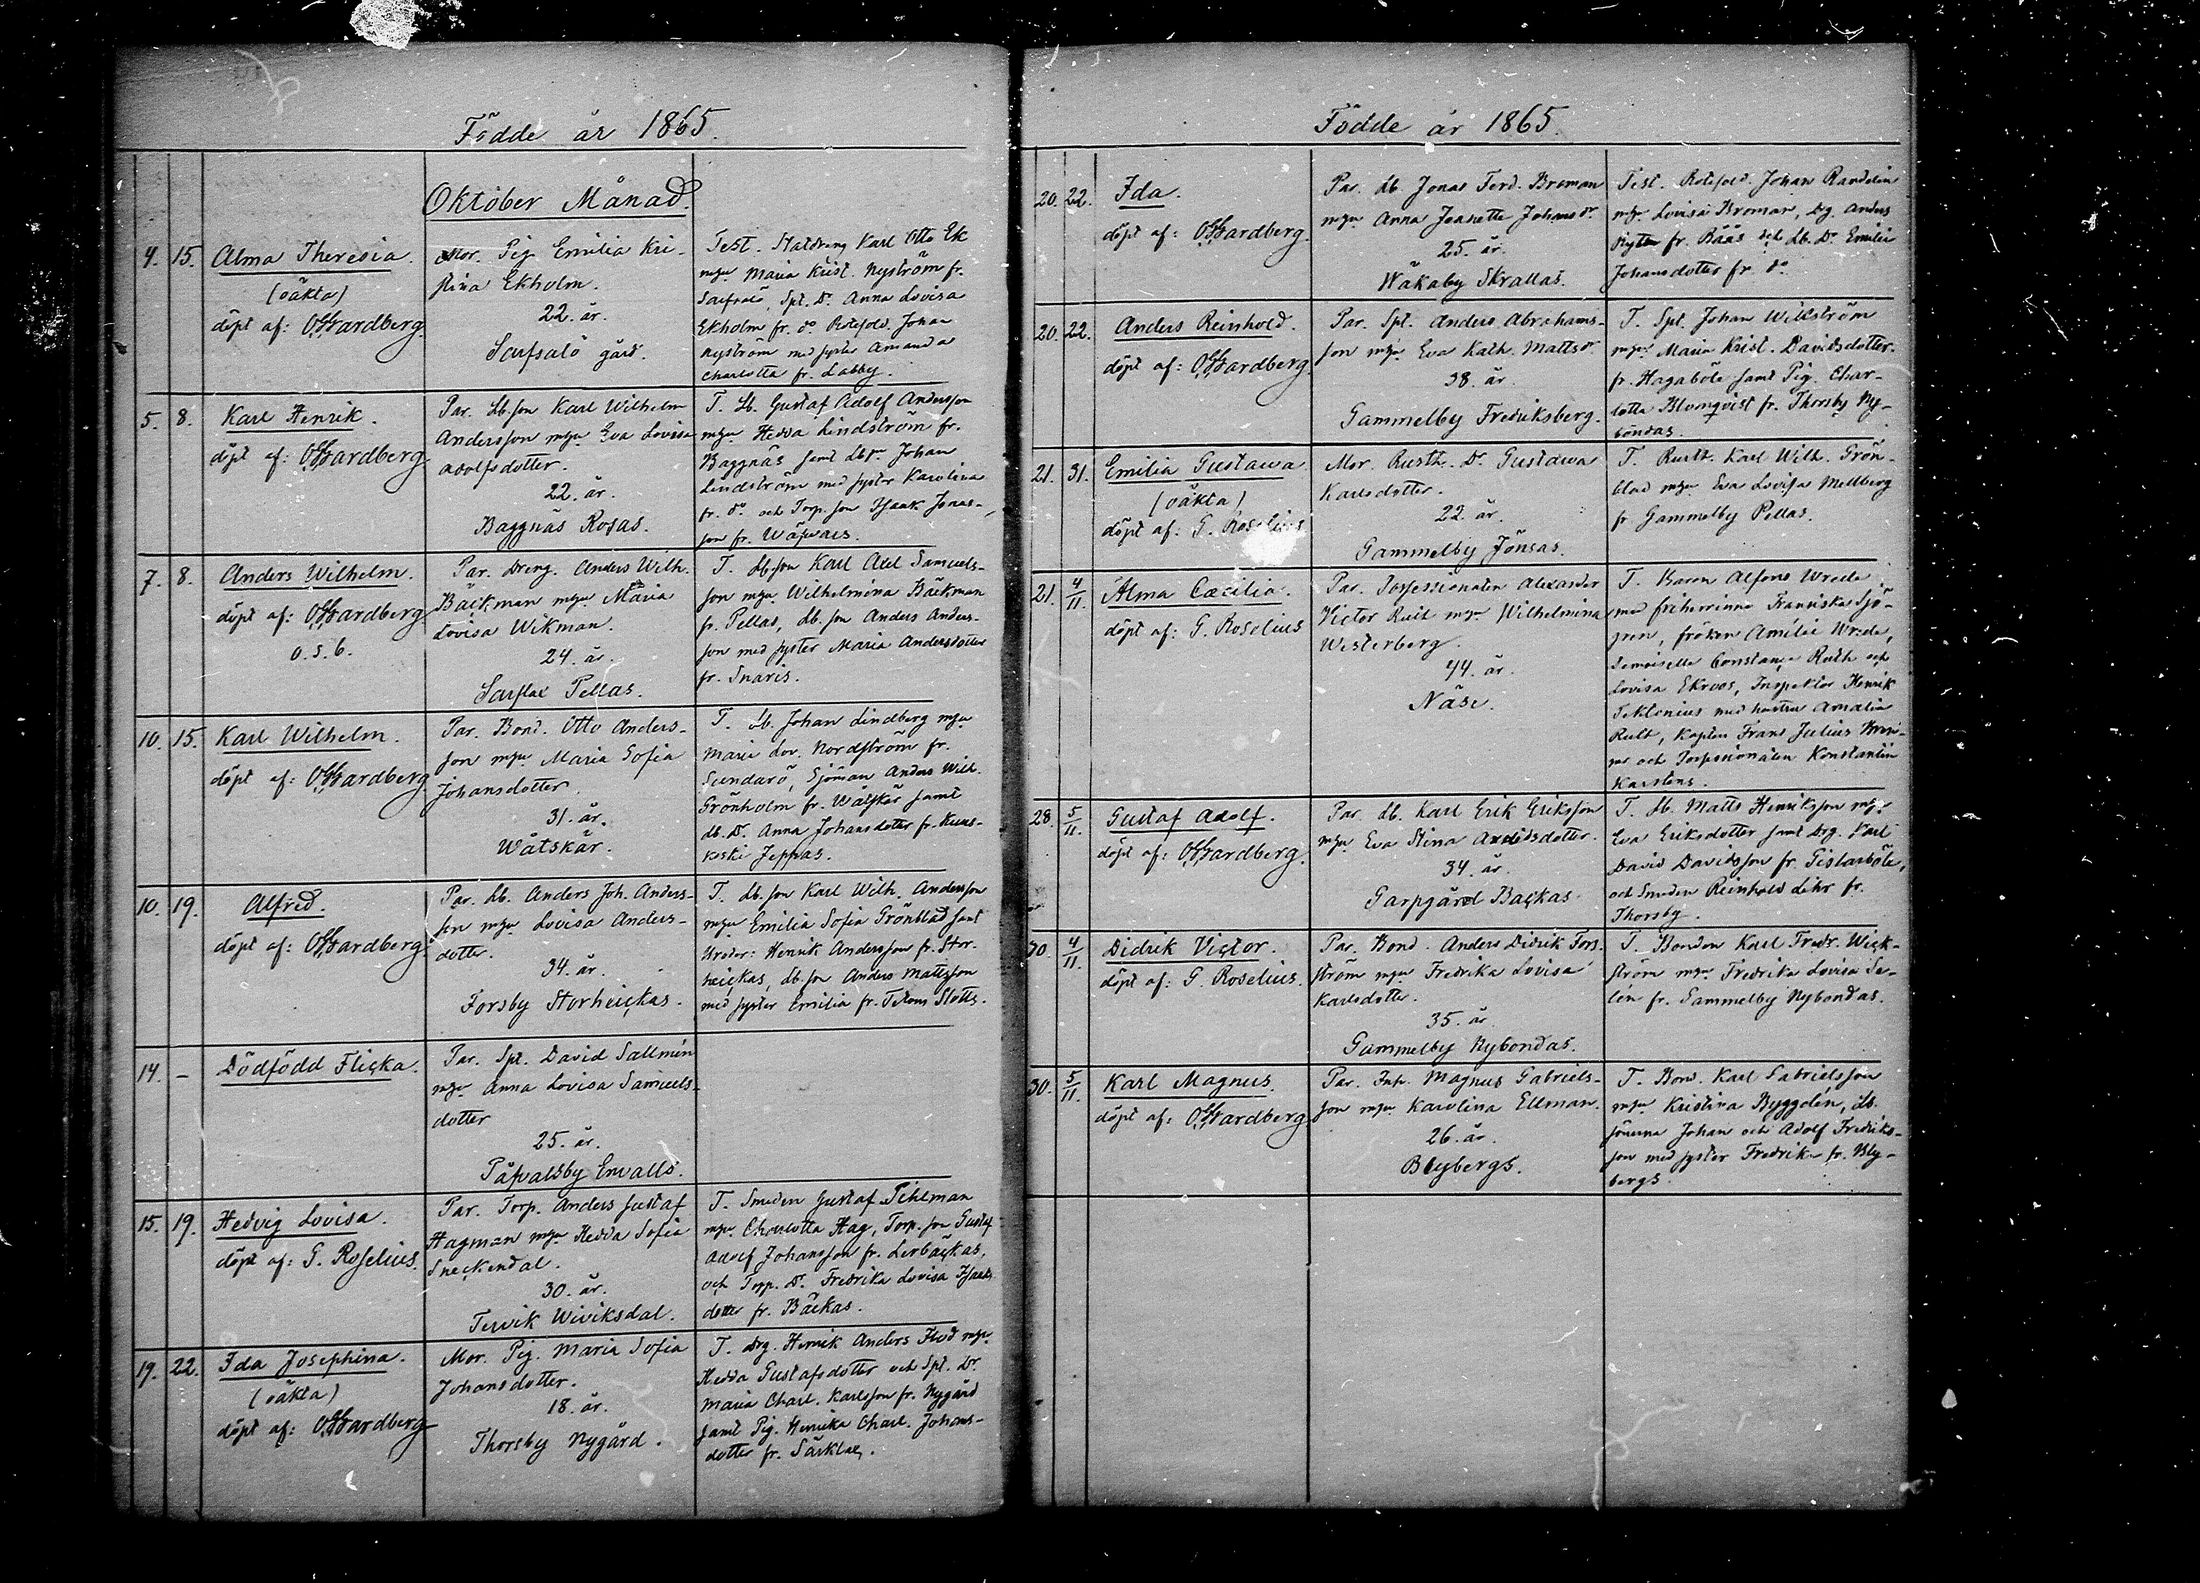 Födde år 1865.
Oktober Månad.
4. 15. Alma Theresia.
(oäkta)
döpt af: O. Hardberg.
Mor. Pig. Emilia Kri-
stina Ekholm.
22. år.
Sarfsalö gård.
Test. Statdreng Karl Otto Ek
m. hu Maria Krist. Nyström fr.
Sarfsalö, Spt. Dr. Anna Lovisa
Ekholm fr. do Rotefold. Johan
Nyström med syster Amanda
Charlotta fr. Labby.
5. 8. Karl Henrik.
döpt af: O. Hardberg
Par. Lb. son Karl Wilhelm
Andersson m. hu Eva Lovisa
Adolfsdotter.
22. år.
Baggnäs Rosas.
T. Lb. Gustaf Adolf Andersson
m. hu Hedda Lindström fr.
Baggnäs samt Johan
Lindström med syster Karolina
fr. do och Torp. son Isaak Jonas-
son fr.
7. 8. Anders Wilhelm.
döpt af: O. Hardberg
o. s. b.
Par. Dreng. Anders Wilh.
Bäckman m. hu Maria
Lovisa Wikman.
24. år.
Särklax Pellas.
T. Lb. son Karl Axel Samuels-
son m. hu Wilhelmina Bäckman
fr. Pellas, Lb. son Anders Anders-
son med syster Maria Andersdotter
fr. Snäris.
10. 15. Karl Wilhelm.
döpt af: O. Hardberg.
Par. Bond. Otto Anders-
son m. hu Maria Sofia
Johansdotter.
31. år.
Wåtskär.
T. Lb. Johan Lindberg m. hu
Maria Lov. Nordström fr.
Sundarö, Sjöman Anders Wilh.
Grönholm fr. Wåtskär samt
Lb. Dr. Anna Johansdotter fr. Kuus-
koski Jeppas.
10. 19. Alfred.
döpt af: O. Hardberg.
Par. Lb. Anders Joh. Anders-
son m. hu Lovisa Anders-
dotter.
34. år.
Forsby Storheickas.
T. Lb. son Karl Wilh. Andersson
m. hu Emilia Sofia Grönblad samt
Henrik Andersson fr. Stor-
heickas, Lb. son Anders Mattsson
med syster Emilia fr. Tetom Slotts.
14. – Dödfödd Flicka.
Par. Spt. David Sallmén
m. hu Anna Lovisa Samuels-
dotter
25. år.
Påfvalsby Envalls.
15. 19. Hedvig Lovisa.
döpt af: G. Roselius.
Par. Torp. Anders Gustaf
Hagman m. hu Hedda Sofia
Sneckendal.
30. år.
Tervik Wiviksdal.
T. Smeden Gustaf Pihlman
m. hu Charlotta Hag, Torp. son Gustaf
Adolf Johansson fr. Lerbäckas,
och Torp. Dr. Fredrika Lovisa Isaks
dotter fr. Bäckas.
19. 22. Ida Josephina.
(oäkta)
döpt af: O. Hardberg
Mor. Pig. Maria Sofia
Johansdotter.
18. år.
Thorsby Nygård.
T. Drg. Henrik Anders Flod m. hu
Hedda Gustafsdotter och Spt. Dr.
Maria Charl. Karlsson fr. Nygård
samt Pig. Henrika Charl. Johans-
dotter fr. Särklax.
Födde år 1865.
20. 22. Ida.
döpt af: O. Hardberg.
Par. Lb. Jonas Ferd. Broman
m. hu Anna Jeanette Johansdr.
25. år.
Wäkaby Skrallas.
Test. Rotefold. Johan Randelin
m. hu Lovisa Broman, Drg. Anders
fr. Bäås och Lb. Dr. Emilia
Johansdotter fr. do
20. 22. Anders Reinhold.
döpt af: O. Hardberg.
Par. Spt. Anders Abrahams-
son m. hu Eva Kath. Mattsdr.
38. år.
Gammelby Fredriksberg.
T. Spt. Johan Willström
m. hu Maria Krist. Davidsdotter
fr. Hagaböle samt Pig. Char-
lotta Blomqvist fr. Thorsby Ny-
bondas.
21. 31. Emilia Gustawa
(oäkta)
döpt af: G. Roselius
Mor. Rusth. Dr. Gustawa
Karlsdotter.
22. år.
Gammelby Jönsas.
T. Rusth. Karl Wilh. Grön-
blad m. hu Eva Lovisa Mellberg
fr Gammelby Pellas.
21. 4/11. Alma Cæcilia.
döpt af: G. Roselius
Par. Possessionaten Alexander
Victor Rult m. hu Wilhelmina
Westerberg.
44. år.
Näse.
T. Baron Alfons Wrede
med friherrinna Franciska Sjö-
gren, fröken Amélie Wrede,
Demoiselle Constance Ruth och
Lovisa Ekroos, Inspektor Henrik
Tektonius med hustru Amalia
Rult, Kapten Frans Julius
och Possessionaten Konstantin
Karstens.
28. 5/11. Gustaf Adolf.
döpt af: O. Hardberg.
Par. Lb. Karl Erik Eriksson
m. hu Eva Stina Andersdotter.
34. år.
Garpgård Backas.
T. Lb. Matts Henriksson m. hu
Eva Eriksdotter samt Drg. Karl
David Davidsson fr Gislarböle,
och Smeden Reinhold Löhr fr.
Thorsby.
30. 4/11. Didrik Victor.
döpt af: G. Roselius.
Par. Bond. Anders Didrik Fors-
ström m. hu Fredrika Lovisa
Karlsdotter.
35. år.
Gammelby Nybondas.
T. Bonden Karl Fredr. Wick-
ström m. hu Fredrika Lovisa Se-
lén fr. Gammelby Nybondas.
30. 5/11. Karl Magnus.
döpt af: O. Hardberg
Par. Inh. Magnus Gabriels-
son m. hu Karolina Ellman.
26. år.
Blybergs.
T. Bond. Karl Gabrielsson
m. hu Kristina Byggdén, Lb.
sönerna Johan och Adolf Fredriks-
son med syster Fredrika fr. Bly-
bergs.